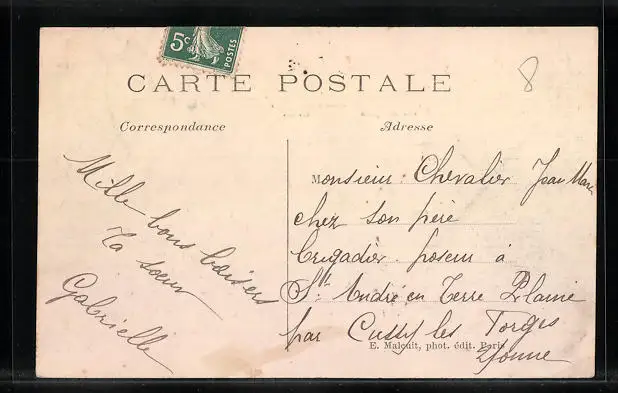 5c
POSTES
CARTE POSTALE
8
Correspondance
Adresse
Mille bons baisers
Ta soeur
Gabrielle
Monsieur Chevalier Jean Marc
chez son père
brigadier poseur à
St André en Terre Plaine
par Cussy les Forges
Yonne
E. Malcuit, phot. édit. Paris